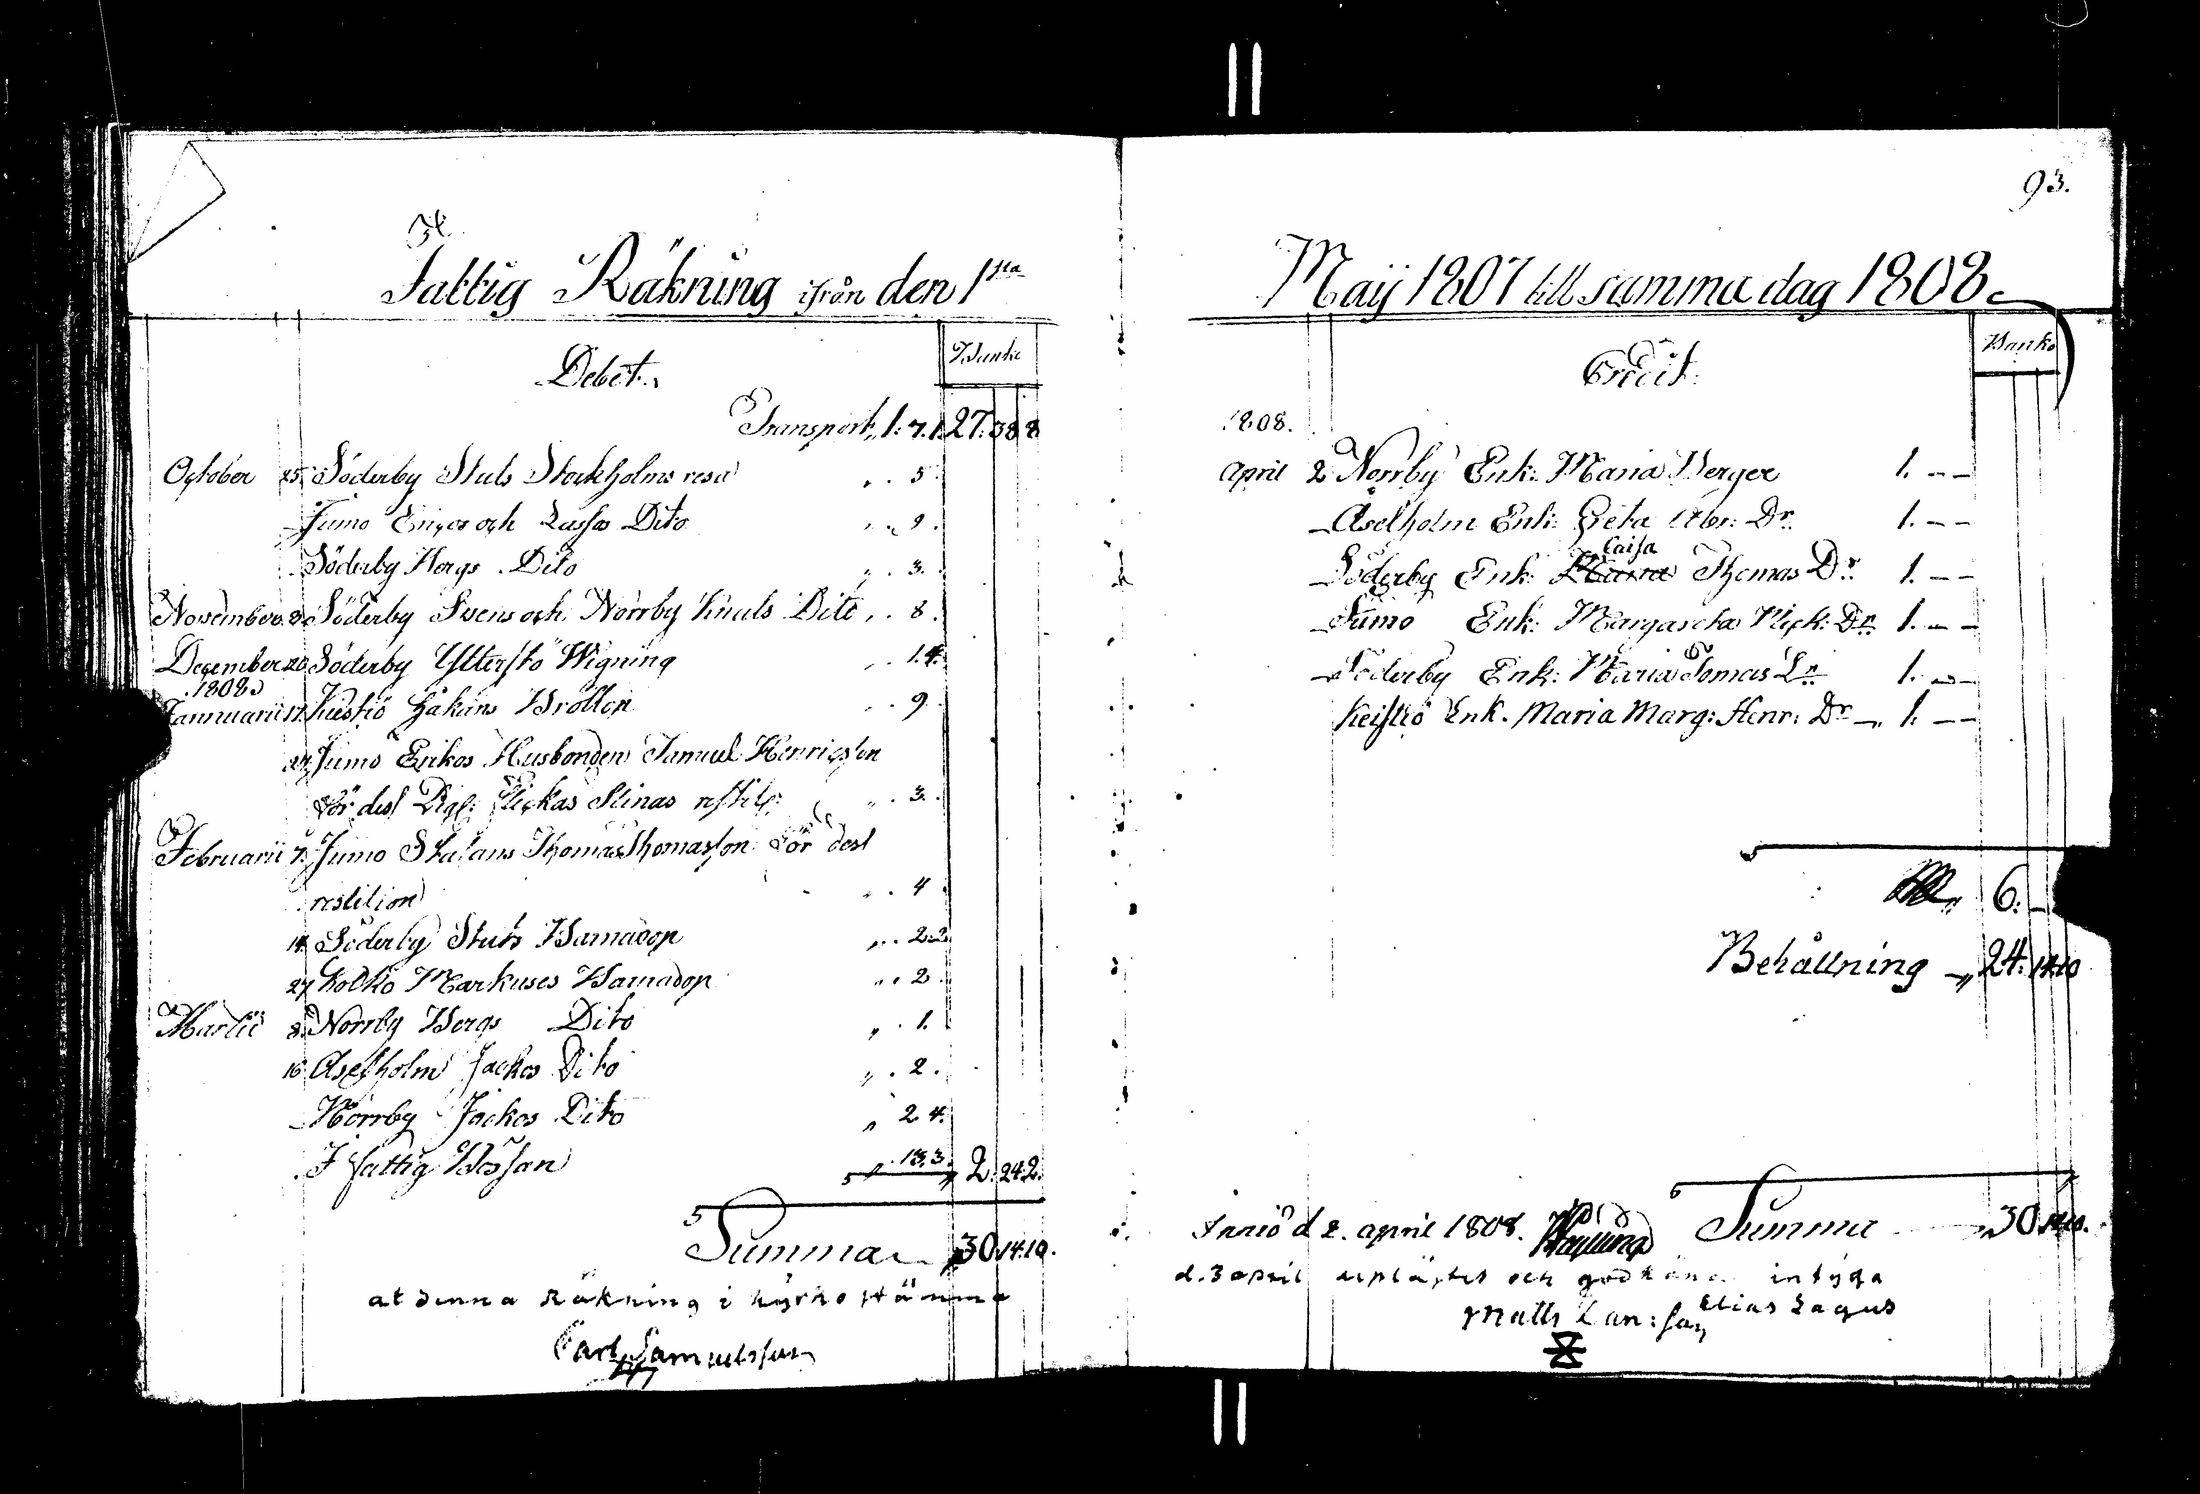 93.
Fattig Räkning ifrån den 1sta
Maij 1807 till samma dag 1808
Debet.
Banko
Transport, 1: 7. 1. 27: 38 8
October 25. Söderby Stuts Stockholms resa „ . 5.
Jumo och Dito „ . 9.
Söderby Bergs Dito „ . 3.
November 8. Söderby Svens och Norrby Knuts Dito „ . 8.
December 26 Söderby Ytterstö Wigning „ . 1.4.
1808
Januarii 17. Keistiö Håkans Bröllop „ . 9.
24. Jumo Erikos Husbonden Samuel Henricsson
för dess Pig: Flickas Stinas „ . 3.
Februarii 7. Jumo Thomas Thomasson för dess
restition „ . 4
14. Söderby Stuts Barnadop „ . 2.2
27 Kolko Markuses Barnadop „ . 2.
Martii 8. Norrby Bergs Dito „ . 1.
16. Åselholm Jackos Dito „ . 2.
Norrby Jackos Dito „ 2 4.
I fattig Bössan „ . 13.3. 2. 24:2.
Summa 30.14:10.
at denna Räkning i kyrko stämma
Carl Samuelsson
Credit.
Banko
1808.
April 2 Norrby Enk: Maria Berger 1. – –
Åselholm Enk: Greta Abr: Dr. 1. – –
Caisa
Söderby Enk: Thomas Dr. 1. – –
Jumo Enk: Margareta Mick: Dr. 1. – –
Söderby Enk: Maria Tomas Dr. 1. – –
Keistiö Enk. Maria Marg: Henr: Dr „ 1. – –
6. –
Behållning „ 24: 14:10
Summa 30.14:10.
Iniö d 2. april 1808.
d. 3 april upläst och godkänd intyga
Matts Lars: son Elias Lagus